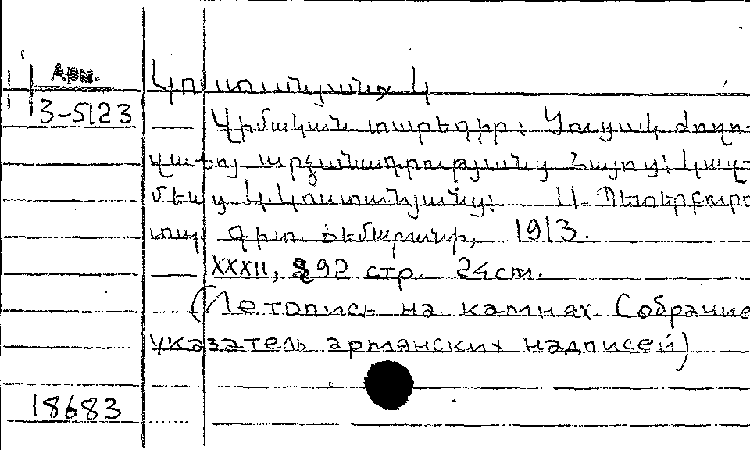 Арм.
Կոստանյանց Կ
3-5123
Վիմական տարեգիր: Ցուցակ ժողո-
վածոյ արձանագրությանց Հայոց: Կազ-
մեց Կ. Կոստանյանց: Ս. Պետերբուրգ
տպ. Գիտ. ճեմարանի, 1913.
XXXII, 292 стр. 24 см.
(Летопись на камнях. Собрание
указатель армянских надписей)
18683